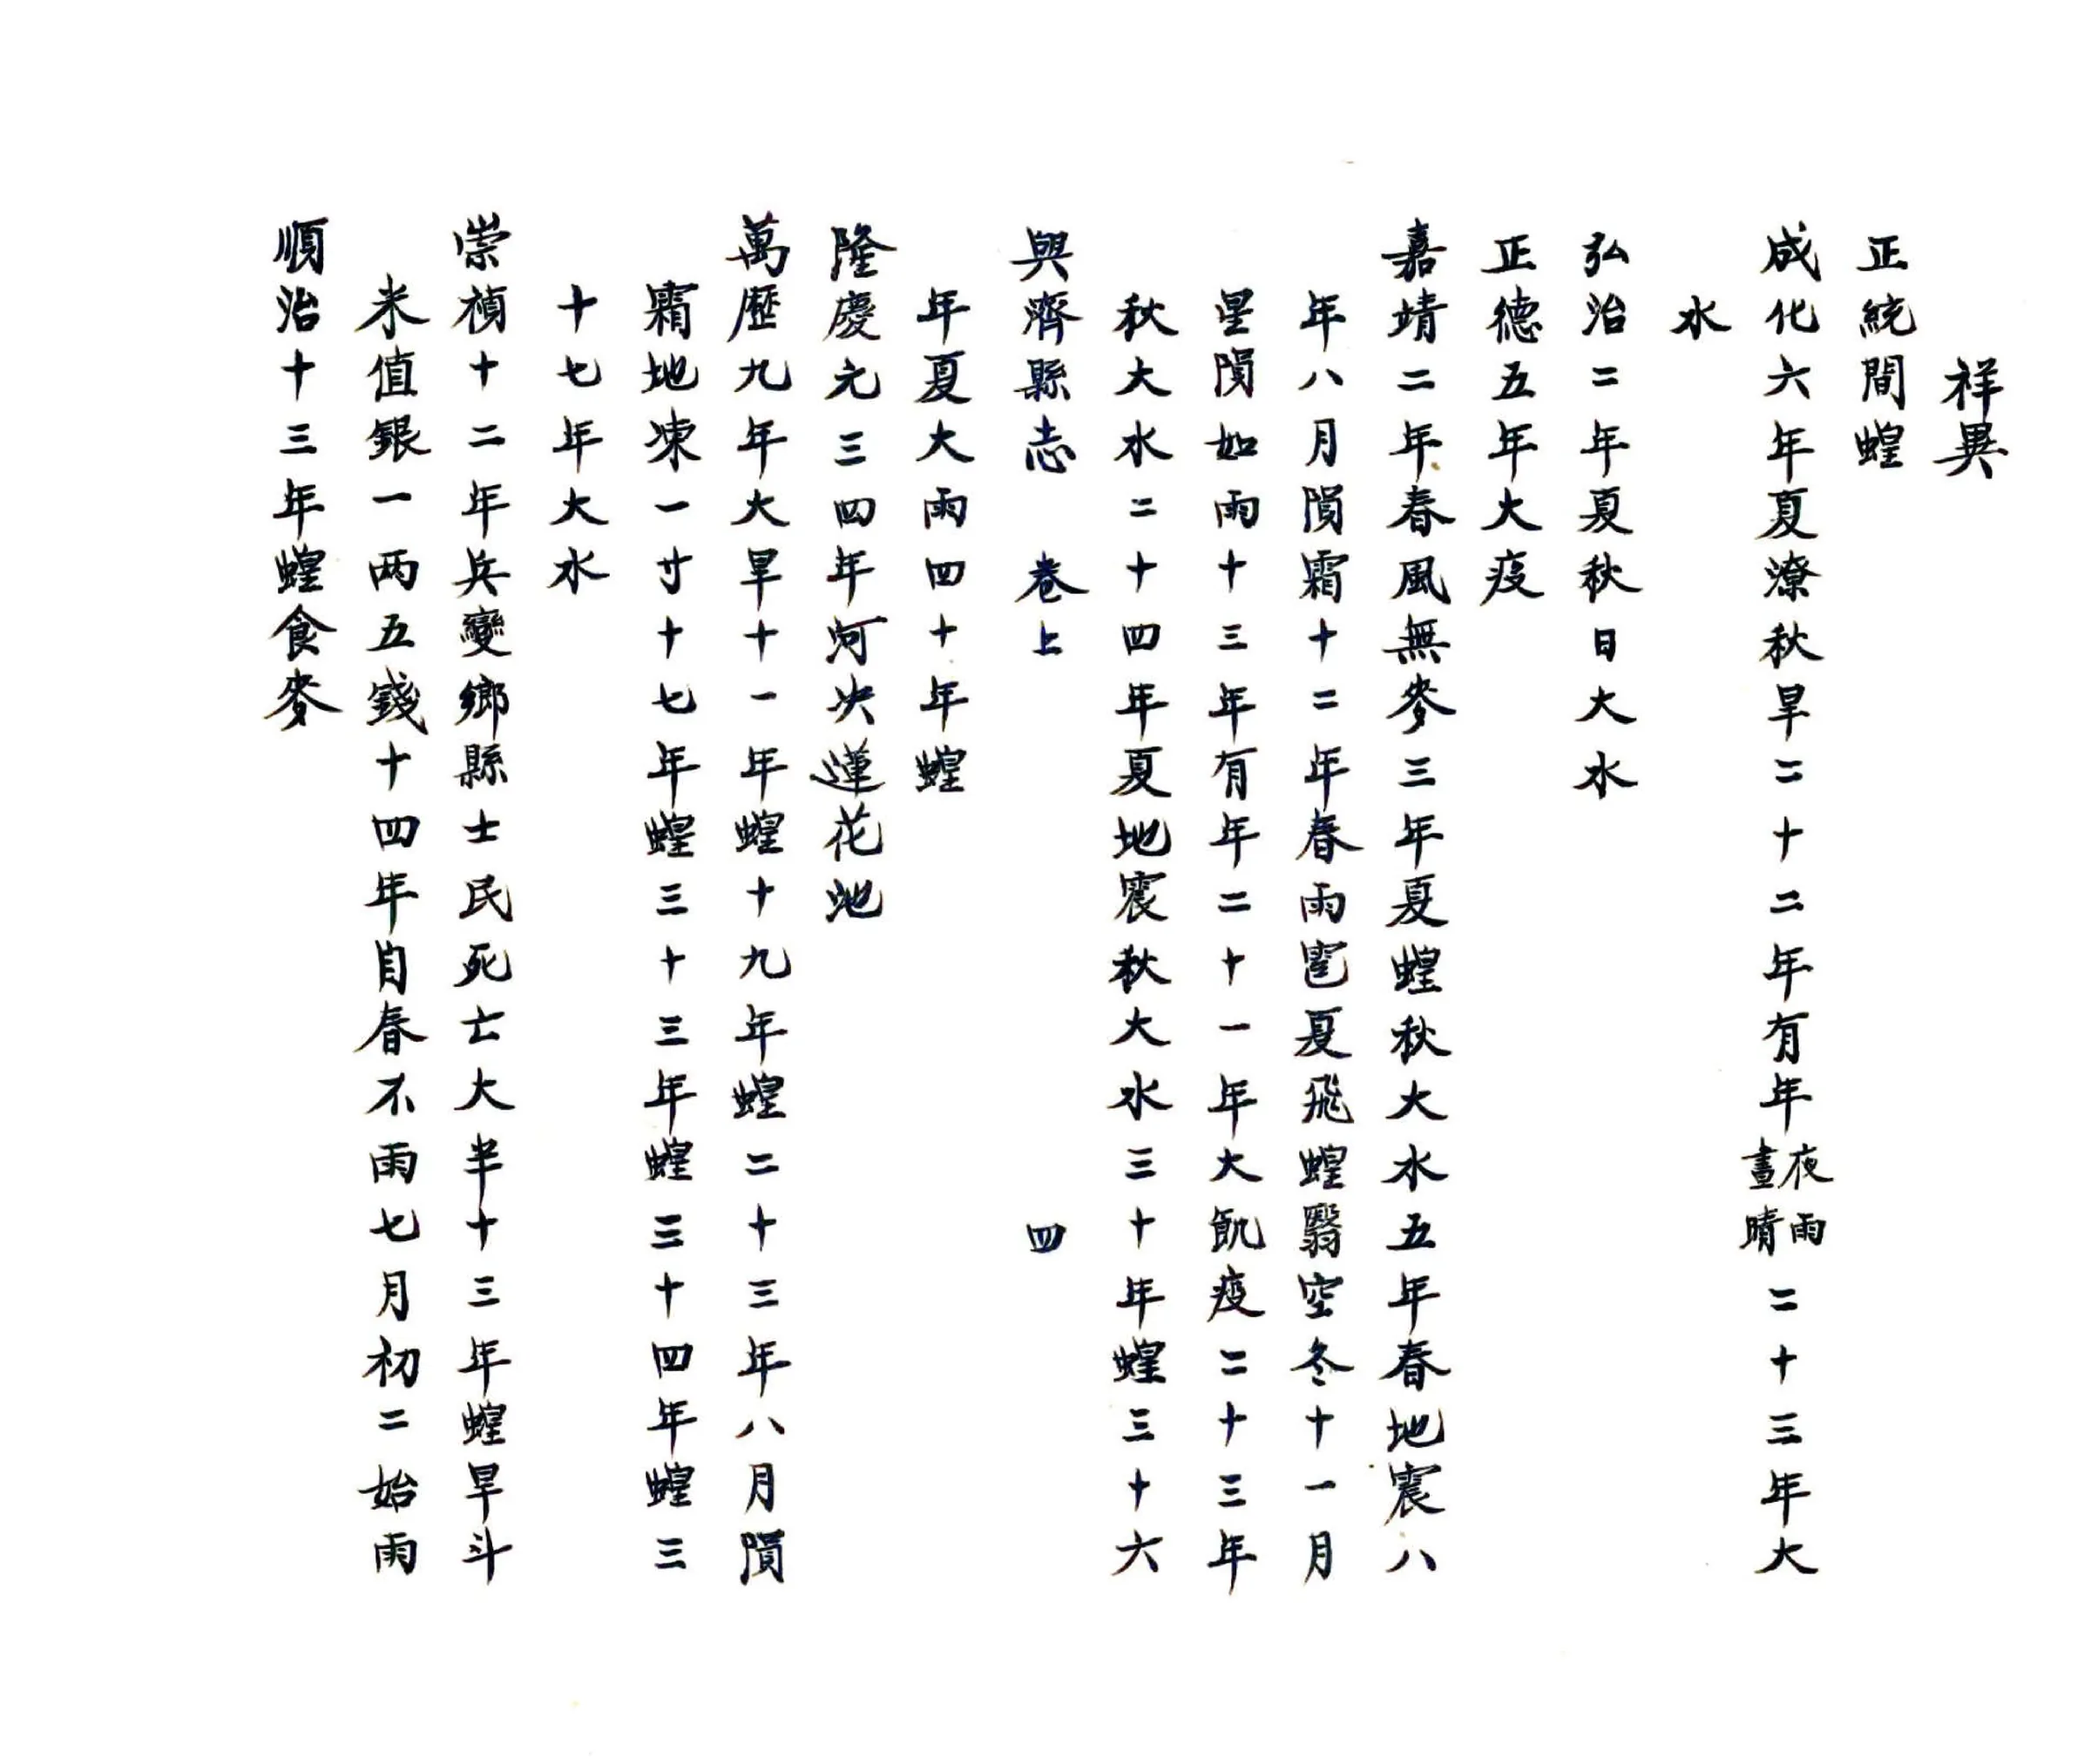 祥異
正統間蝗
成化六年夏潦秋旱二十二年有年夜雨晝晴二十三年大
水
弘治二年夏秋日大水
正德五年大疫
嘉靖二年春風無麥三年夏蝗秋大水五年春地震八
年八月隕霜十二年春雨雹夏飛蝗翳空冬十一月
星隕如雨十三年有年二十一年大飢疫二十三年
秋大水二十四年夏地震秋大水三十年蝗三十六
興濟縣志 卷上 四
年夏大雨四十年蝗
隆慶元三四年河決蓮花池
萬歷九年大旱十一年蝗十九年蝗二十三年八月隕
霜地凍一寸十七年蝗三十三年蝗三十四年蝗三
十七年大水
崇禎十二年兵變鄉縣士民死亡大半十三年蝗旱斗
米值銀一两五錢十四年自春不雨七月初二始雨
順治十三年蝗食麥